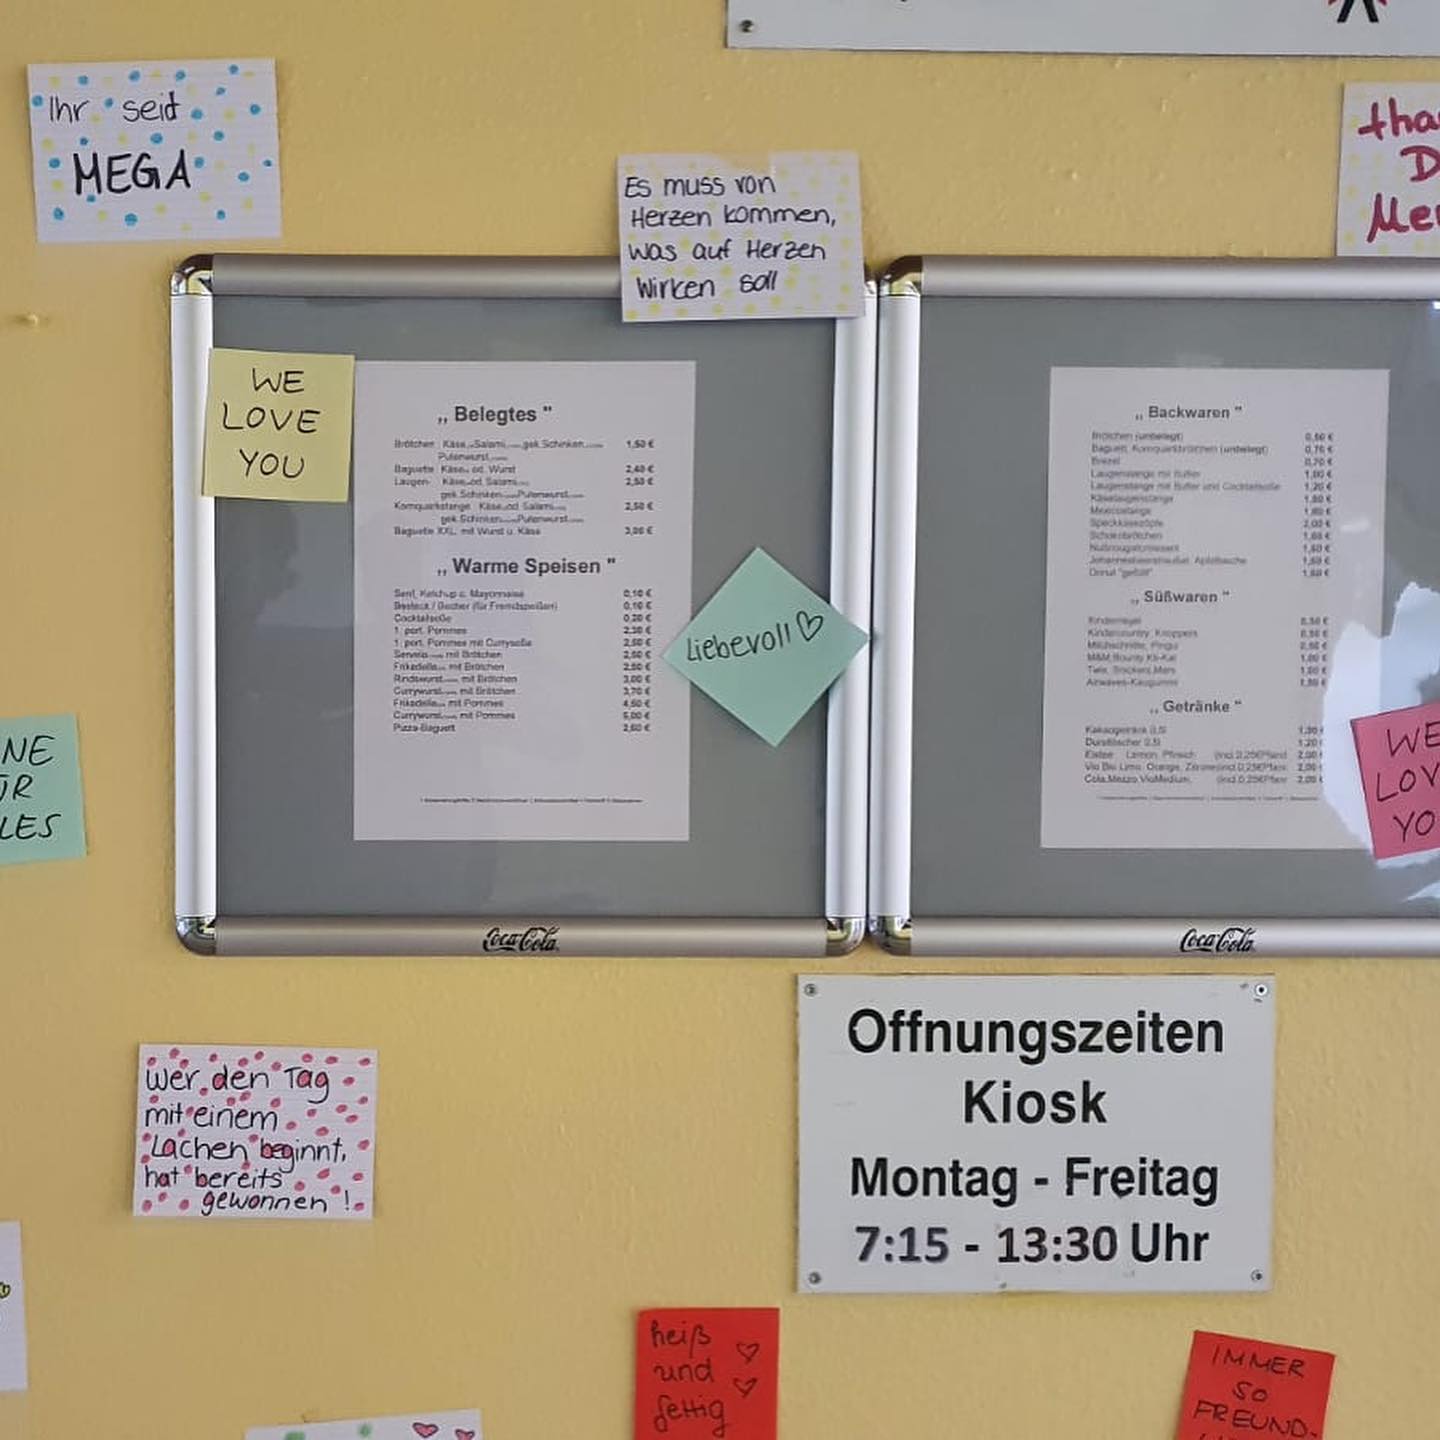 Ihr seid
MEGA
Es muss von
Herzen kommen,
was auf Herzen
wirken soll
WE
LOVE
YOU
„ Belegtes "
Brötchen Käse, Salami, gek.Schinken 1,50 €
Putenwurst
Baguette Käse od. Wurst 2,40 €
Laugen- Käse od. Salami 2,50 €
gek.Schinken Putenwurst
Kornquarkstange Käse od. Salami 2,50 €
gek.Schinken Putenwurst
Baguette XXL, mit Wurst u. Käse 3,00 €
„ Warme Speisen "
Senf, Ketchup o. Mayonnaise 0,10 €
Besteck / Becher (für Fremdspeißen) 0,10 €
Cocktailsoße 0,20 €
1. port. Pommes 2,30 €
1. port. Pommes mit Currysoße 2,50 €
Servela mit Brötchen 2,50 €
Frikadelle mit Brötchen 2,50 €
Rindswurst mit Brötchen 3,00 €
Currywurst mit Brötchen 3,70 €
Frikadelle mit Pommes 4,50 €
Currywurst mit Pommes 5,00 €
Pizza-Baguett 2,60 €
Liebevoll
„ Backwaren "
Brötchen (unbelegt) 0,50 €
Baguett, Kornquarkbrötchen (unbelegt) 0,70 €
Brezel 0,70 €
Laugenstange mit Butter 1,00 €
Laugenstange mit Butter und Cocktailsoße 1,20 €
Käselaugenstange
Mexicostange
Speckkäsezöpfe 2,00 €
Schokobrötchen
Nußnougatcroissant
Donut "gefüllt"
„ Süßwaren "
Kinderriegel
Kindercountry, Knoppers
Milchschnitte, Pingu
M&M,Bounty, Kit-Kat
Twix, Snickers,Mars
Airwaves-Kaugummi
„ Getränke "
Kakaogetränk 0,5l
Durstlöscher 0,5l 1,20
Eistee Lemon, Pfirsich (incl.0,25€Pfand 2,00
Vio Bio Limo. Orange, Zitrone(incl.0,25€Pfan 2,00
Cola,Mezzo,VioMedium, (incl.0,25€Pfan 2,00
Coca-Cola
Coca-Cola
tha
D
Mer
WE
LOV
YO
NE
ÜR
LES
Wer den Tag
mit einem
Lachen beginnt,
hat bereits
gewonnen !
Öffnungszeiten
Kiosk
Montag - Freitag
7:15 - 13:30 Uhr
heiß
und
fettig
IMMER
SO
FREUND-